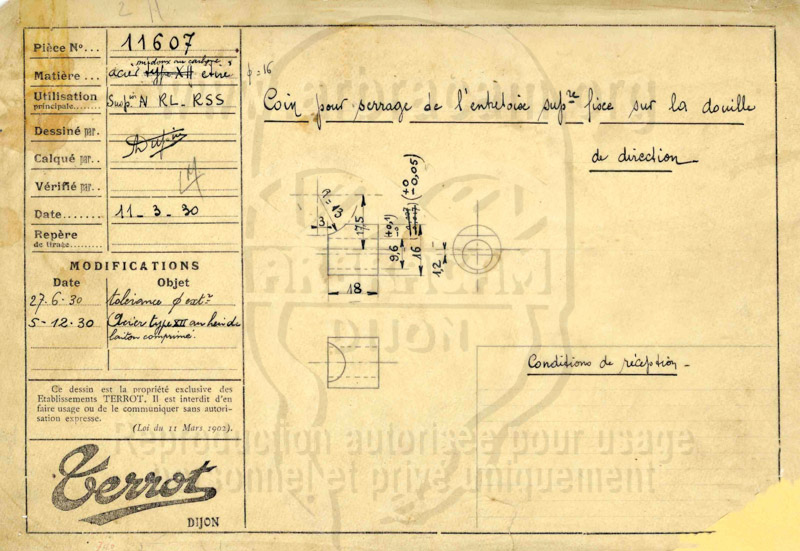 Pièce No... 11607
ou doux au carbone
Matière... acier type XII étiré φ=16
Utilisation principale... Suspon N RL_RSS
Dessiné par.
Calqué par..
Vérifié par..
Date........ 11_3_30
Repère
de tirage.....
MODIFICATIONS
Date Objet
27.6.30 tolérance φ extr
5-12.30 Acier type XII au lieu de
laiton comprimé.
Ce dessin est la propriété exclusive des
Etablissements TERROT. Il est interdit d'en
faire usage ou de le communiquer sans autori-
sation expresse.
(Loi du 11 Mars 1902).
Terrot
DIJON
Coin pour serrage de l'entretoise supre fixe sur la douille
de direction_
R=13
3
17,5
9,6 (+0,1 -0)
16 (+0 -0,05)
1,2
18
Conditions de réception_
DIJON
Reproduction autorisée pour usage
personnel et privé uniquement